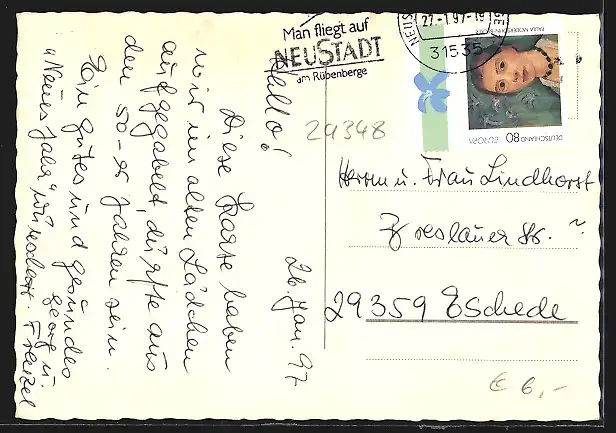 Man fliegt auf
NEUSTADT
am Rübenberge
27-1.97-18
31535
PAULA MODERSOHN-BECKER
DEUTSCHLAND 80
EUROPA
29348
26. Jan. 97
Hallo!
Diese Karte haben
wir im alten Lädchen
aufgegabelt, dürfte aus
den 50-er Jahren sein.
Ein gutes und gesundes
"Neues Jahr" wünschen
Georg u.
Herrn u. Frau Lindhorst
Breslauer Str.
29359 Eschede
€ 6,-